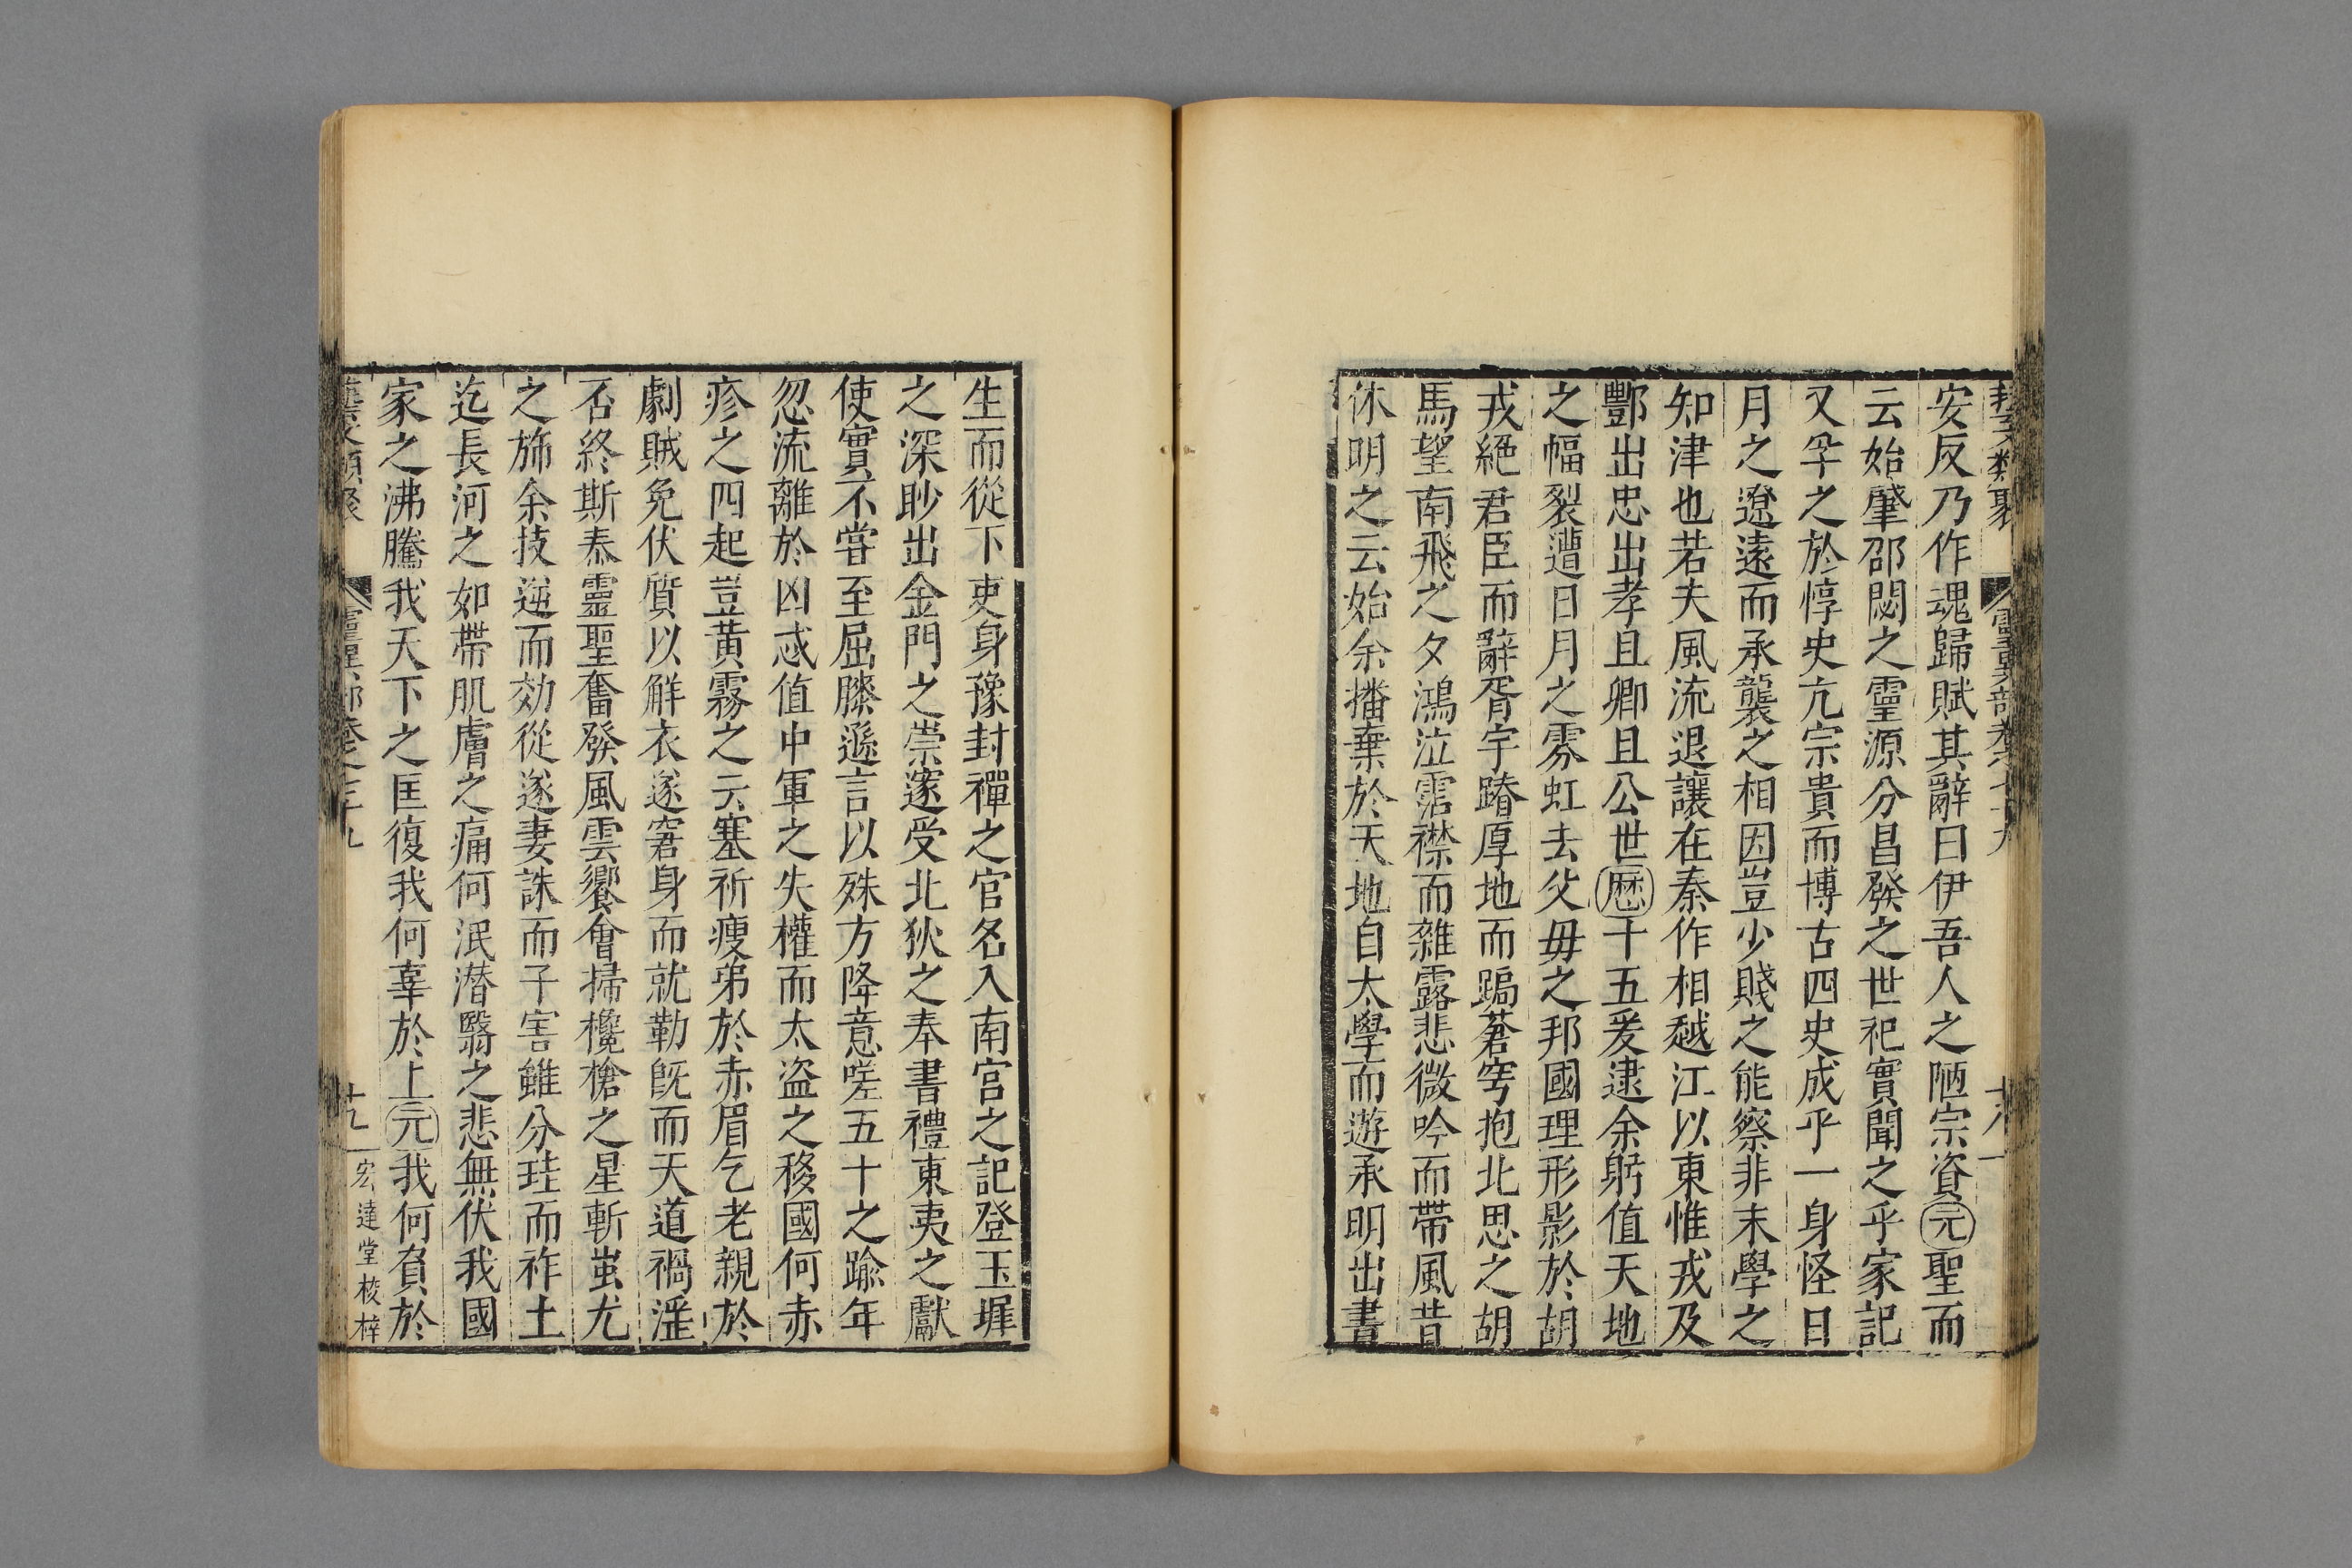 藝文類聚 靈異部卷七十九 十八
安反乃作魂歸賦其辭曰伊吾人之陋宗資元聖而
云始肇邵閟之靈源分昌發之世祀實聞之乎家記
又孚之於惇史亢宗貴而博古四史成乎一身怪日
月之遼遠而承襲之相因豈少賤之能察非末學之
知津也若夫風流退讓在秦作相越江以東惟戎及
酆出忠出孝且卿且公世歷十五爰逮余躬值天地
之幅裂遭日月之雰虹去父毋之邦國理形影於胡
戎絕君臣而辭胥宇蹐厚地而跼蒼穹抱北思之胡
馬望南飛之夕鴻泣霑襟而雜露悲微吟而帶風昔
休明之云始余播棄於天地自太學而遊承明出書
生而從下吏身豫封禪之官名入南宮之記登玉墀
之深眇出金門之崇邃受北狄之奉書禮東夷之獻
使實不嘗至屈膝遜言以殊方降意嗟五十之踰年
忽流離於凶忒值中軍之失權而太盜之移國何赤
疹之四起豈黃霧之云塞祈瘦弟於赤眉乞老親於
劇賊免伏質以解衣遂窘身而就勒旣而天道禍淫
否終斯泰靈聖奮發風雲饗會掃欃槍之星斬蚩尤
之旆余技逆而効從遂妻誅而子害雖分珪而祚土
迄長河之如帶肌膚之痛何泯潜翳之悲無伏我國
家之沸騰我天下之匡復我何辜於上元我何負於
藝文類聚 靈異部卷之七十九 十九 宏達堂校梓